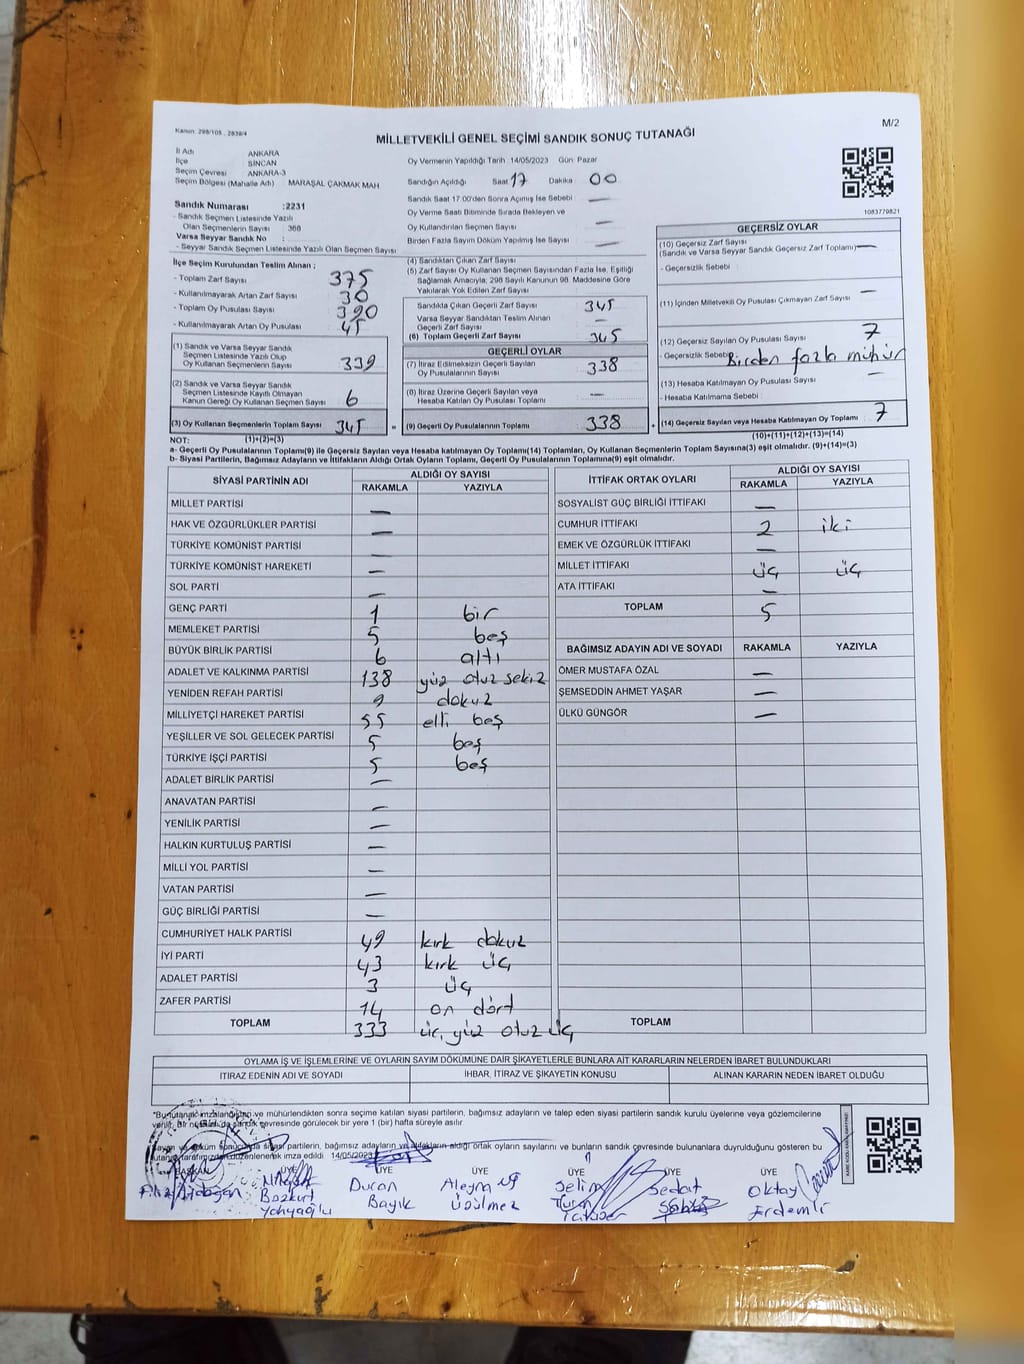 Kanun: 298/105 , 2839/4
M/2
MİLLETVEKİLİ GENEL SEÇİMİ SANDIK SONUÇ TUTANAĞI
İl Adı ANKARA
İlçe SİNCAN
Seçim Çevresi ANKARA-3
Seçim Bölgesi (Mahalle Adı) MARAŞAL ÇAKMAK MAH
Oy Vermenin Yapıldığı Tarih 14/05/2023 Gün Pazar
Sandığın Açıldığı Saat 17 Dakika 00
Sandık Saat 17.00'den Sonra Açılmış İse Sebebi —
Oy Verme Saati Bitiminde Sırada Bekleyen ve
Oy Kullandırılan Seçmen Sayısı —
Birden Fazla Sayım Döküm Yapılmış İse Sayısı —
1083779821
Sandık Numarası :2231
- Sandık Seçmen Listesinde Yazılı
Olan Seçmenlerin Sayısı 360
Varsa Seyyar Sandık No
- Seyyar Sandık Seçmen Listesinde Yazılı Olan Seçmen Sayısı
İlçe Seçim Kurulundan Teslim Alınan ;
- Toplam Zarf Sayısı 375
- Kullanılmayarak Artan Zarf Sayısı 30
- Toplam Oy Pusulası Sayısı 390
- Kullanılmayarak Artan Oy Pusulası 45
(1) Sandık ve Varsa Seyyar Sandık
Seçmen Listesinde Yazılı Olup
Oy Kullanan Seçmenlerin Sayısı 339
(2) Sandık ve Varsa Seyyar Sandık
Seçmen Listesinde Kayıtlı Olmayan
Kanun Gereği Oy Kullanan Seçmen Sayısı 6
(3) Oy Kullanan Seçmenlerin Toplam Sayısı 345
(4) Sandıktan Çıkan Zarf Sayısı
(5) Zarf Sayısı Oy Kullanan Seçmen Sayısından Fazla İse, Eşitliği
Sağlamak Amacıyla; 298 Sayılı Kanunun 98. Maddesine Göre
Yakılarak Yok Edilen Zarf Sayısı
Sandıkta Çıkan Geçerli Zarf Sayısı 345
Varsa Seyyar Sandıktan Teslim Alınan
Geçerli Zarf Sayısı —
(6) Toplam Geçerli Zarf Sayısı 345
GEÇERLİ OYLAR
(7) İtiraz Edilmeksizin Geçerli Sayılan
Oy Pusulalarının Sayısı 338
(8) İtiraz Üzerine Geçerli Sayılan veya
Hesaba Katılan Oy Pusulası Toplamı —
= (9) Geçerli Oy Pusulalarının Toplamı 338
GEÇERSİZ OYLAR
(10) Geçersiz Zarf Sayısı
(Sandık ve Varsa Seyyar Sandık Geçersiz Zarf Toplamı) —
- Geçersizlik Sebebi :
(11) İçinden Milletvekili Oy Pusulası Çıkmayan Zarf Sayısı —
(12) Geçersiz Sayılan Oy Pusulası Sayısı 7
- Geçersizlik Sebebi Birden fazla mühür
(13) Hesaba Katılmayan Oy Pusulası Sayısı —
- Hesaba Katılmama Sebebi :
+ (14) Geçersiz Sayılan veya Hesaba Katılmayan Oy Toplamı 7
NOT: (1)+(2)=(3)
(10)+(11)+(12)+(13)=(14)
a- Geçerli Oy Pusulaları Toplamı(9) ile Geçersiz Sayılan veya Hesaba katılmayan Oy Toplamı(14) Toplamları, Oy Kullanan Seçmenlerin Toplam Sayısına(3) eşit olmalıdır. (9)+(14)=(3)
b- Siyasi Partilerin, Bağımsız Adayların ve İttifakların Aldığı Ortak Oyların Toplamı, Geçerli Oy Pusulalarının Toplamına(9) eşit olmalıdır.
SİYASİ PARTİNİN ADI ALDIĞI OY SAYISI
RAKAMLA YAZIYLA
MİLLET PARTİSİ —
HAK VE ÖZGÜRLÜKLER PARTİSİ —
TÜRKİYE KOMÜNİST PARTİSİ —
TÜRKİYE KOMÜNİST HAREKETİ —
SOL PARTİ —
GENÇ PARTİ 1 bir
MEMLEKET PARTİSİ 5 beş
BÜYÜK BİRLİK PARTİSİ 6 altı
ADALET VE KALKINMA PARTİSİ 138 yüz otuz sekiz
YENİDEN REFAH PARTİSİ 9 dokuz
MİLLİYETÇİ HAREKET PARTİSİ 55 elli beş
YEŞİLLER VE SOL GELECEK PARTİSİ 5 beş
TÜRKİYE İŞÇİ PARTİSİ 5 beş
ADALET BİRLİK PARTİSİ —
ANAVATAN PARTİSİ —
YENİLİK PARTİSİ —
HALKIN KURTULUŞ PARTİSİ —
MİLLİ YOL PARTİSİ —
VATAN PARTİSİ —
GÜÇ BİRLİĞİ PARTİSİ —
CUMHURİYET HALK PARTİSİ 49 kırk dokuz
İYİ PARTİ 43 kırk üç
ADALET PARTİSİ 3 üç
ZAFER PARTİSİ 14 on dört
TOPLAM 333 üç yüz otuz üç
İTTİFAK ORTAK OYLARI ALDIĞI OY SAYISI
RAKAMLA YAZIYLA
SOSYALİST GÜÇ BİRLİĞİ İTTİFAKI —
CUMHUR İTTİFAKI 2 iki
EMEK VE ÖZGÜRLÜK İTTİFAKI —
MİLLET İTTİFAKI üç üç
ATA İTTİFAKI —
TOPLAM 5
BAĞIMSIZ ADAYIN ADI VE SOYADI RAKAMLA YAZIYLA
ÖMER MUSTAFA ÖZAL —
ŞEMSEDDİN AHMET YAŞAR —
ÜLKÜ GÜNGÖR —
TOPLAM
OYLAMA İŞ VE İŞLEMLERİNE VE OYLARIN SAYIM DÖKÜMÜNE DAİR ŞİKAYETLERLE BUNLARA AİT KARARLARIN NELERDEN İBARET BULUNDUKLARI
İTİRAZ EDENİN ADI VE SOYADI İHBAR, İTİRAZ VE ŞİKAYETİN KONUSU ALINAN KARARIN NEDEN İBARET OLDUĞU
"Bu tutanak imzalandıktan ve mühürlendikten sonra seçime katılan siyasi partilerin, bağımsız adayların ve talep eden siyasi partilerin sandık kurulu üyelerine veya gözlemcilerine
verilir. Bir nüshası da sandık çevresinde görülecek bir yere 1 (bir) hafta süreyle asılır
Sayım ve döküm sonuçunda siyasi partilerin, bağımsız adayların ve ittifakların aldığı ortak oyların sayılarını ve bunların sandık çevresinde bulunanlara duyrulduğunu gösteren bu
tutanak tarafımızdan düzenlenerek imza edildi. 14/05/2023
BAŞKAN ÜYE ÜYE ÜYE ÜYE ÜYE ÜYE
Bozkurt Yahyaoğlu
Duran Bayık
Aleyna Üsülmez
Selim
Sedat
Oktay Erdemli